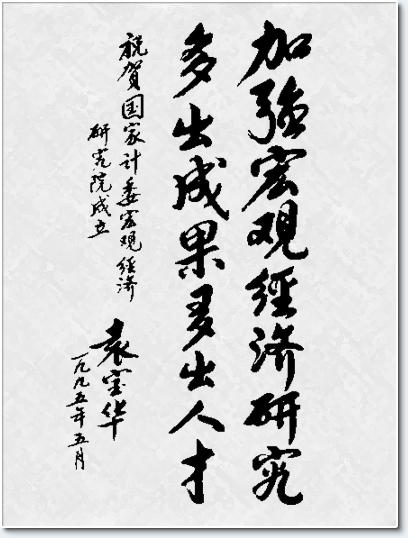 加强宏观经济研究
多出成果多出人才
祝贺国家计委宏观经济
研究院成立
袁宝华
一九九五年五月